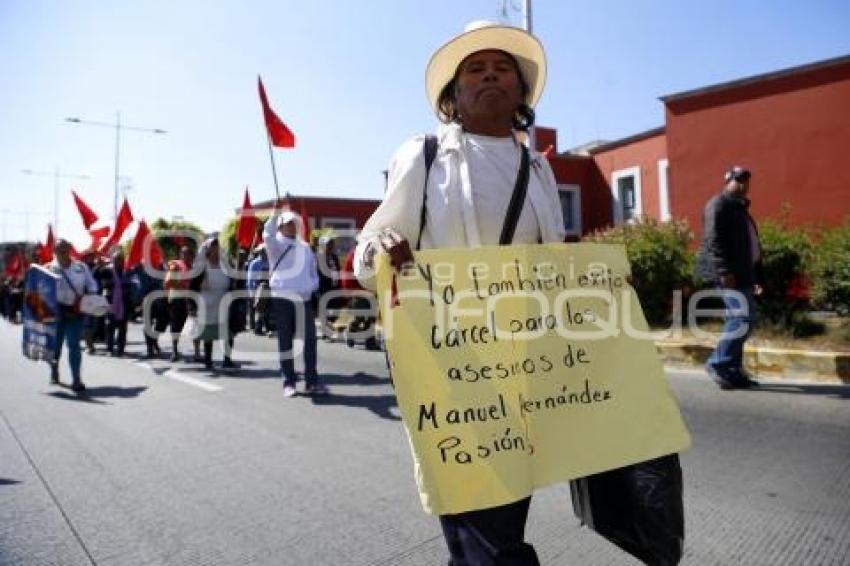 Yo también exijo
cárcel para los
asesinos de
Manuel Hernández
Pasión,
agencia
enfoque